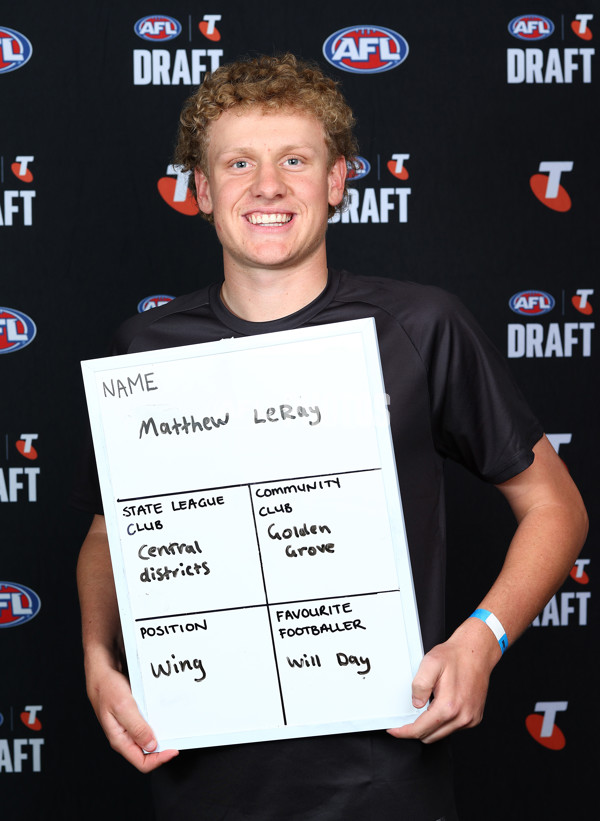 AFL
T
DRAFT
AFL
AFL
T
DRAFT
T
AFT
T
AFL
T
DRAFT
T
AFL
AFL
AFL
T
DRAFT
NAME
Matthew LeRay
STATE LEAGUE
CLUB
Central
districts
COMMUNITY
CLUB
Golden
Grove
POSITION
Wing
FAVOURITE
FOOTBALLER
Will Day
T
AFT
T
DRAFT
AFL
T
AFT
T